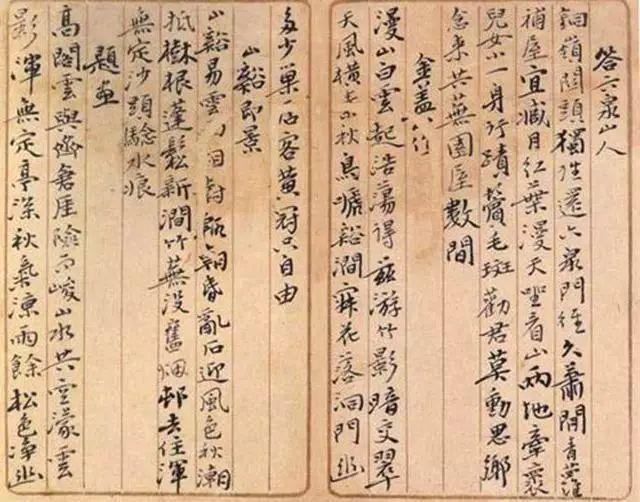 答六泉山人
銅嶺關頭獨往還六泉門徑久蕭閒青蘿
補屋宜減月紅葉漫天坐看山兩地牽
兒女一身行蹟鬢毛斑勸君莫動思鄉
念來共蕪園屋數間
金蓋
漫山白雲起浩蕩得茲游竹影暗交翠
天風橫古秋鳥啼谿澗寂花落洞門幽
多少巢居客黃冠只自由
山谿即景
山谿易雲昏亂石迎風色秋潮
抵樹根蓬鬆新澗竹蕪沒舊烟邨去住渾
無定沙頭驗水痕
題畫
高閣雲與齊倉厓險而峻山水共空濛雲
影渾無定亭深秋氣涼雨餘松色淨幽